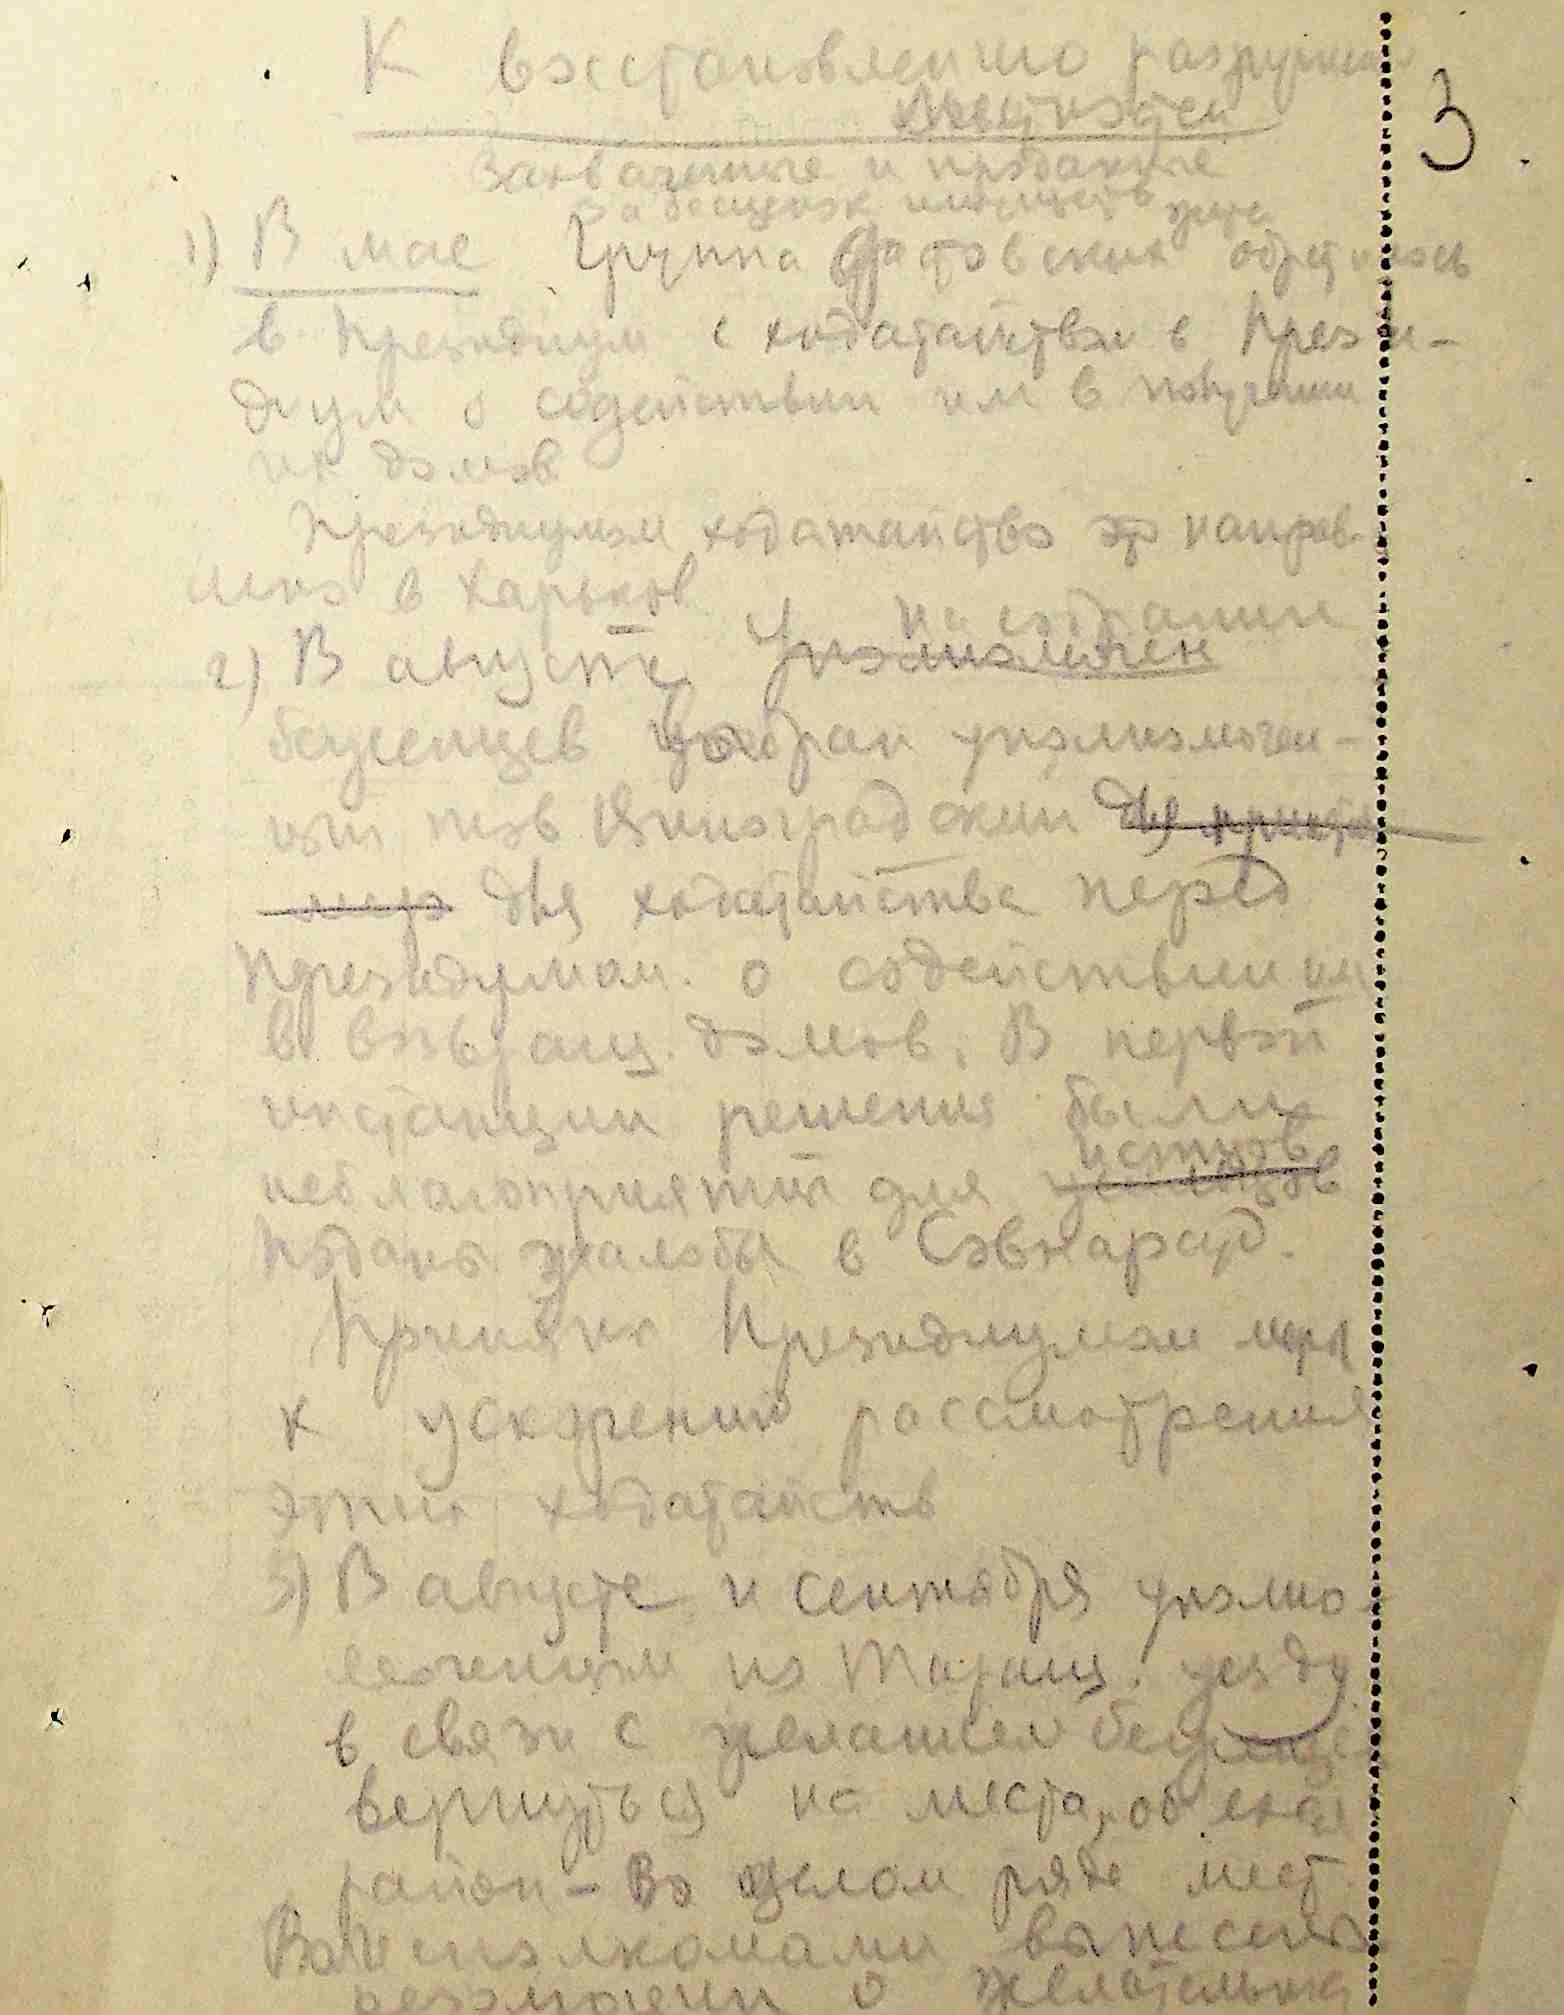 К восстановлению разрушен
местностей
3
Захваченные и проданные
за бесценок имущества
1) В мае Группа Фастовских обратилась
в Президиум с ходатайством в Прези-
диум о содействии им в получении
их домов
Президиумом ходатайство это направ-
лено в Харьков
на собрании
2) В августе Уполномочен
беженцев выбран уполномочен-
ный тов Виноградский для принят
мер для ходатайства перед
Президиумом о содействии им
в возвращ. домов. В первой
инстанции решения были
истцов
неблагоприятны для
Поданы жалобы в Совнарсуд.
Приняты Президиумом меры
к ускорению рассмотрения
этих ходатайств
3) В августе и сентября уполно-
моченным по Таращ. уезду
в связи с желанием беженцев
вернуться на места, объехал
район – Во целом ряде мест
Волисполкомами вынесены
резолюции о желательнос